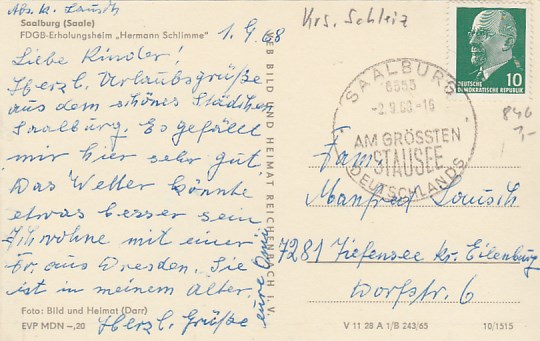 Abs. K. Lausch
Saalburg (Saale)
FDGB-Erholungsheim „Hermann Schlimme"
1.9.68
Liebe Kinder!
Herzl. Urlaubsgrüße
aus dem schönes Städtchen
Saalburg. Es gefällt
mir hier sehr gut.
Das Wetter könnte
etwas besser sein
Ich wohne mit einer
Fr. aus Dresden. Sie
ist in meinem Alter.
Herzl. Grüße
eure Omi
Foto: Bild und Heimat (Darr)
EVP MDN –,20
VEB BILD UND HEIMAT REICHENBACH I. V.
Krs. Schleiz
10
DEUTSCHE
DEMOKRATISCHE REPUBLIK
SAALBURG
6555
AM GRÖSSTEN
STAUSEE
DEUTSCHLANDS
846
1,-
Fam.
Manfred Lausch
7281 Tiefensee Kr. Eilenburg
Dorfstr. 6
V 11 28 A 1/B 243/65
10/1515